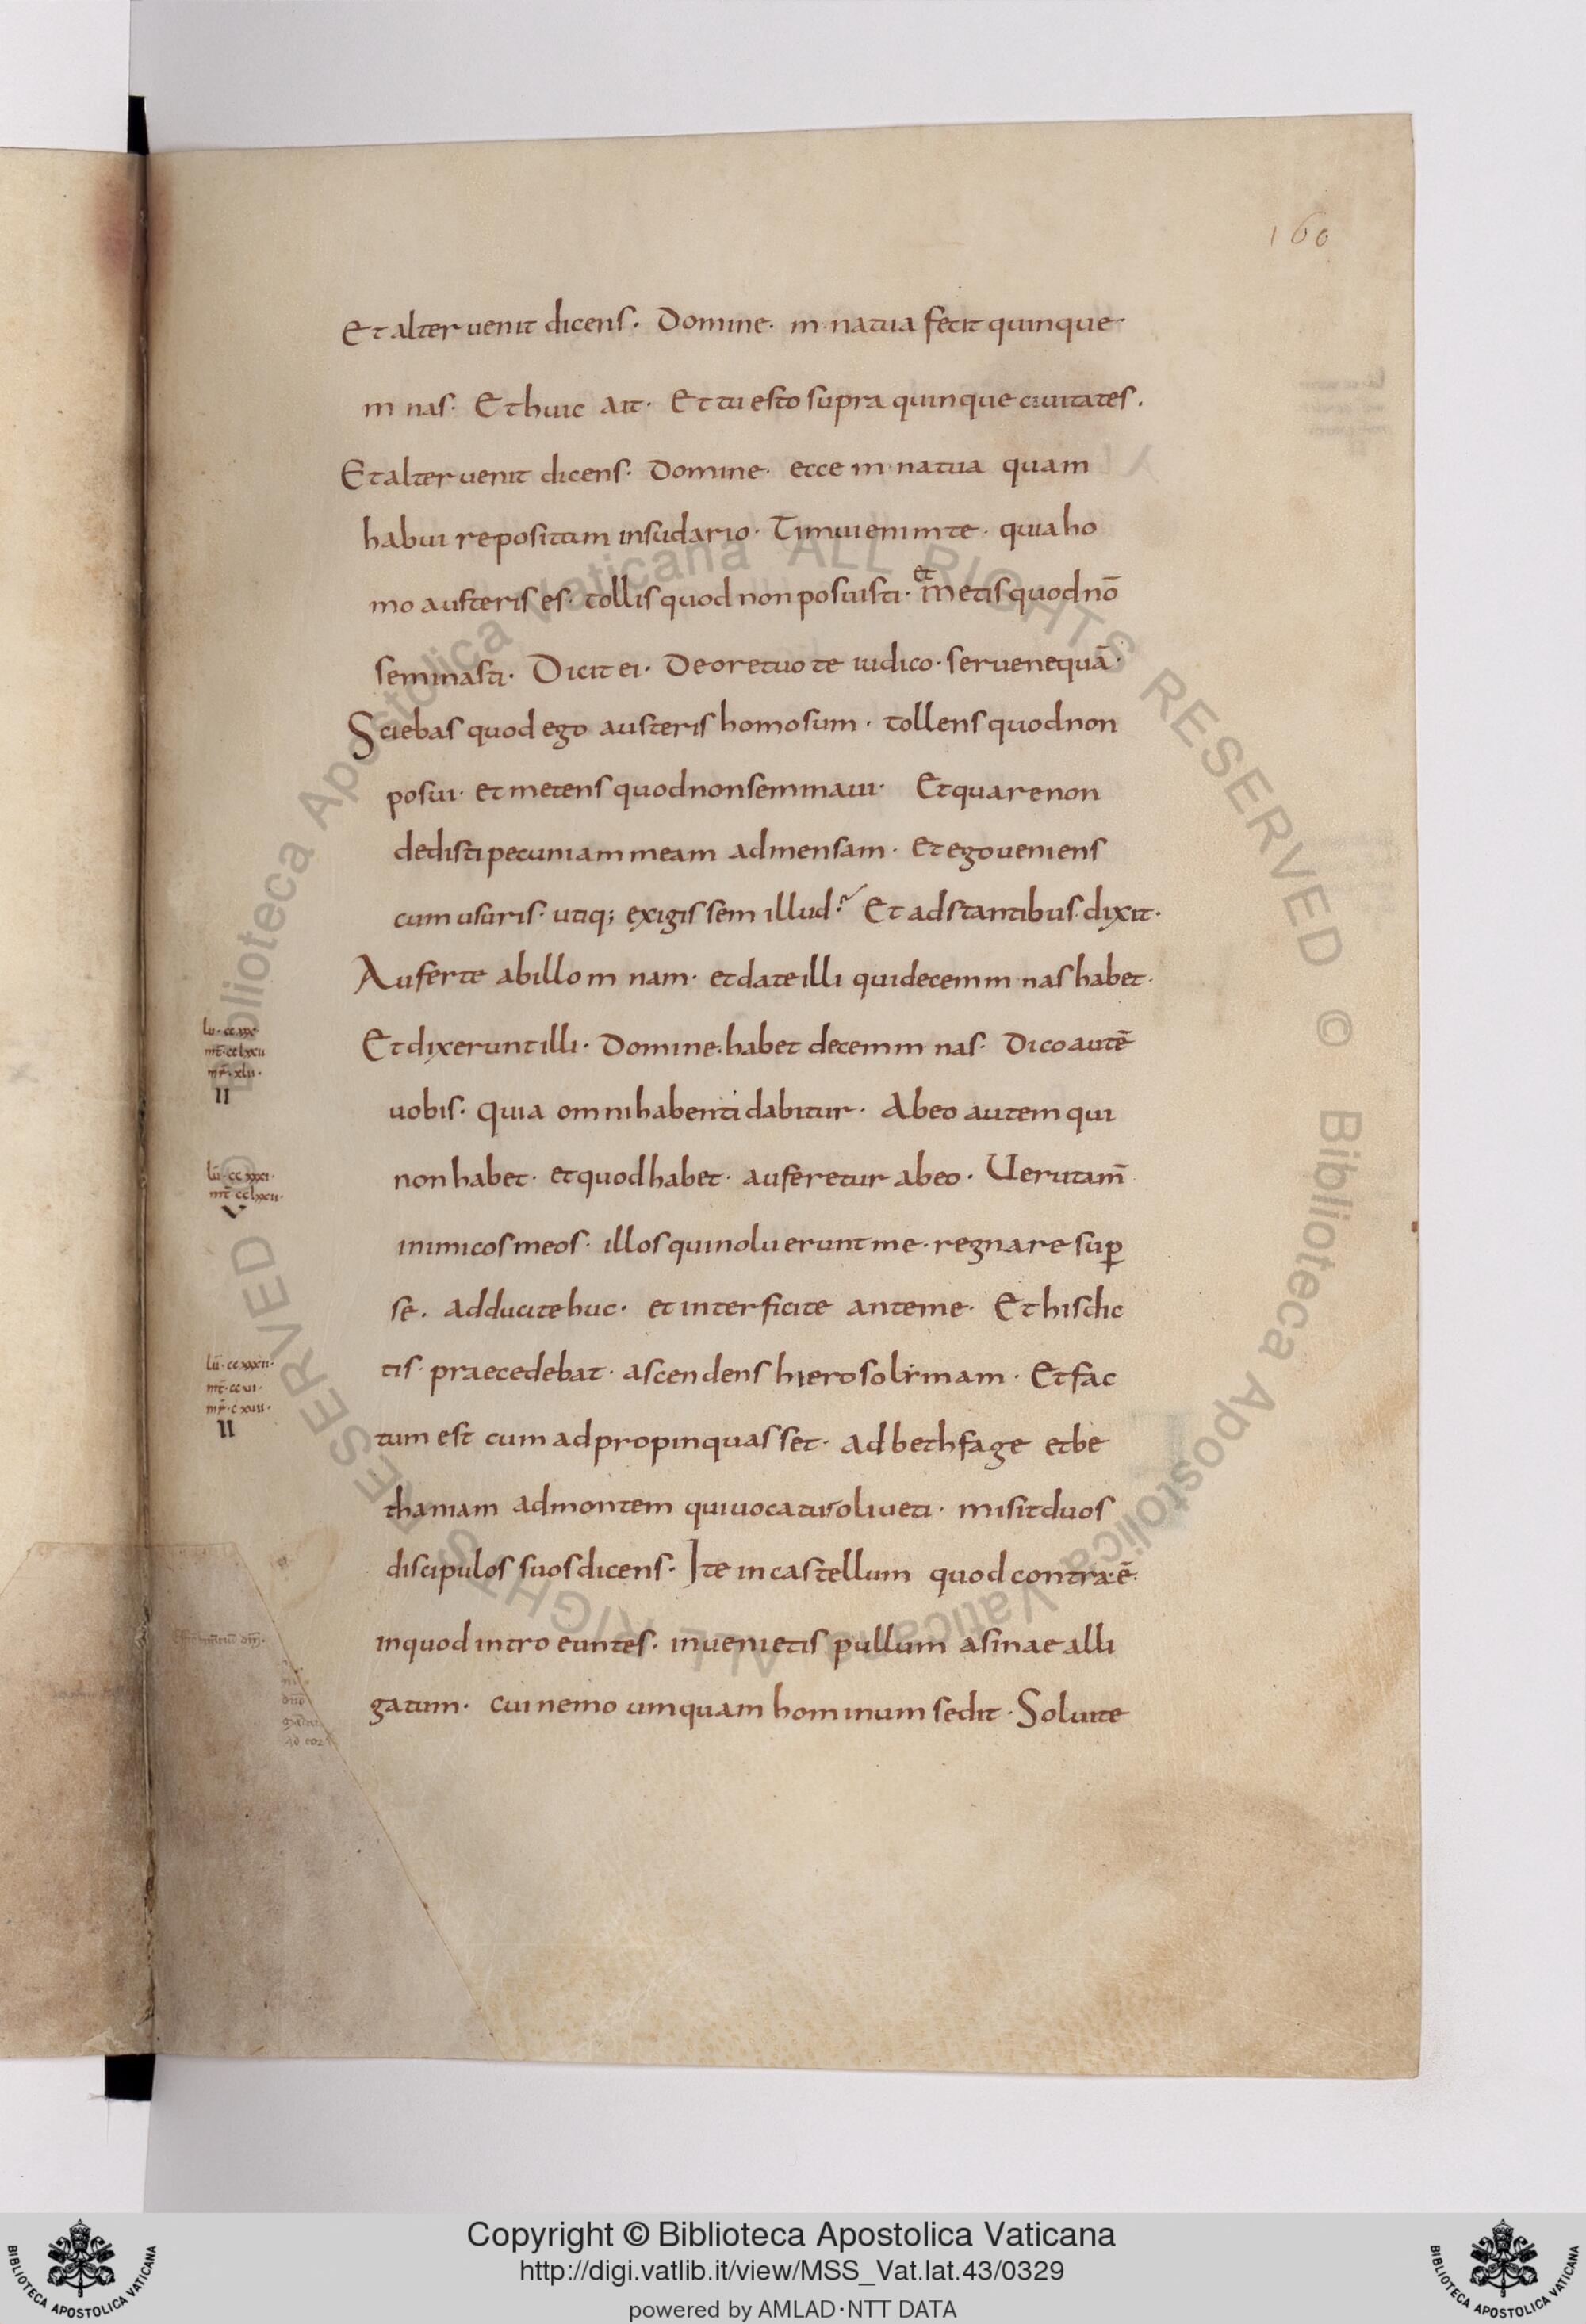 160
Et alter uenit dicens· Domine· m·na tua fecit quinque
m nas· Et huic ait· Et tu esto supra quinque ciuitates·
Et alter uenit dicens· Domine· ecce m·na tua quam
habui repositam in sudario· Timui enim te· quia ho
mo austeris es· tollis quod non posuisti· et metis quod nō
seminasti· Dicit ei· De ore tuo te iudico· serue nequā·
Sciebas quod ego austeris homo sum· tollens quod non
posui· et metens quod non seminaui· Et quare non
dedisti pecuniam meam ad mensam· et ego ueniens
cum usuris· utiq; exigissem illud? Et adstantibus dixit·
Auferte ab illo m nam· et date illi qui decem m nas habet·
lu· cc xxx·
mt̄· cc lxxii
mr̄· xlii·
II
Et dixerunt illi· Domine· habet decem m nas· Dico autē
uobis· quia omni habenti dabitur· Ab eo autem qui
lū· cc xxxi·
mt̄ cc lxxii·
V
non habet· et quod habet· auferetur ab eo· Uerutam̄
inimicos meos· illos qui noluerunt me· regnare sup̱
se· adducite huc· et interficite ante me· Et his dic
lū· cc xxxii·
mt̄· cc vi·
II
tis· praecedebat· ascendens hierosolimam· Et fac
tum est cum adpropinquasset· ad bethfage et be
thaniam ad montem qui uocatur oliueti· misit duos
discipulos suos dicens· Ite in castellum quod contra ē·
in quod intro euntes· inuenietis pullum asinae alli
gatum· cui nemo umquam hominum sedit· Soluite
Biblioteca Apostolica Vaticana ALL RIGHTS RESERVED ©
Biblioteca Apostolica Vaticana ALL RIGHTS RESERVED ©
Copyright © Biblioteca Apostolica Vaticana
http://digi.vatlib.it/view/MSS_Vat.lat.43/0329
powered by AMLAD·NTT DATA
BIBLIOTECA APOSTOLICA VATICANA
BIBLIOTECA APOSTOLICA VATICANA